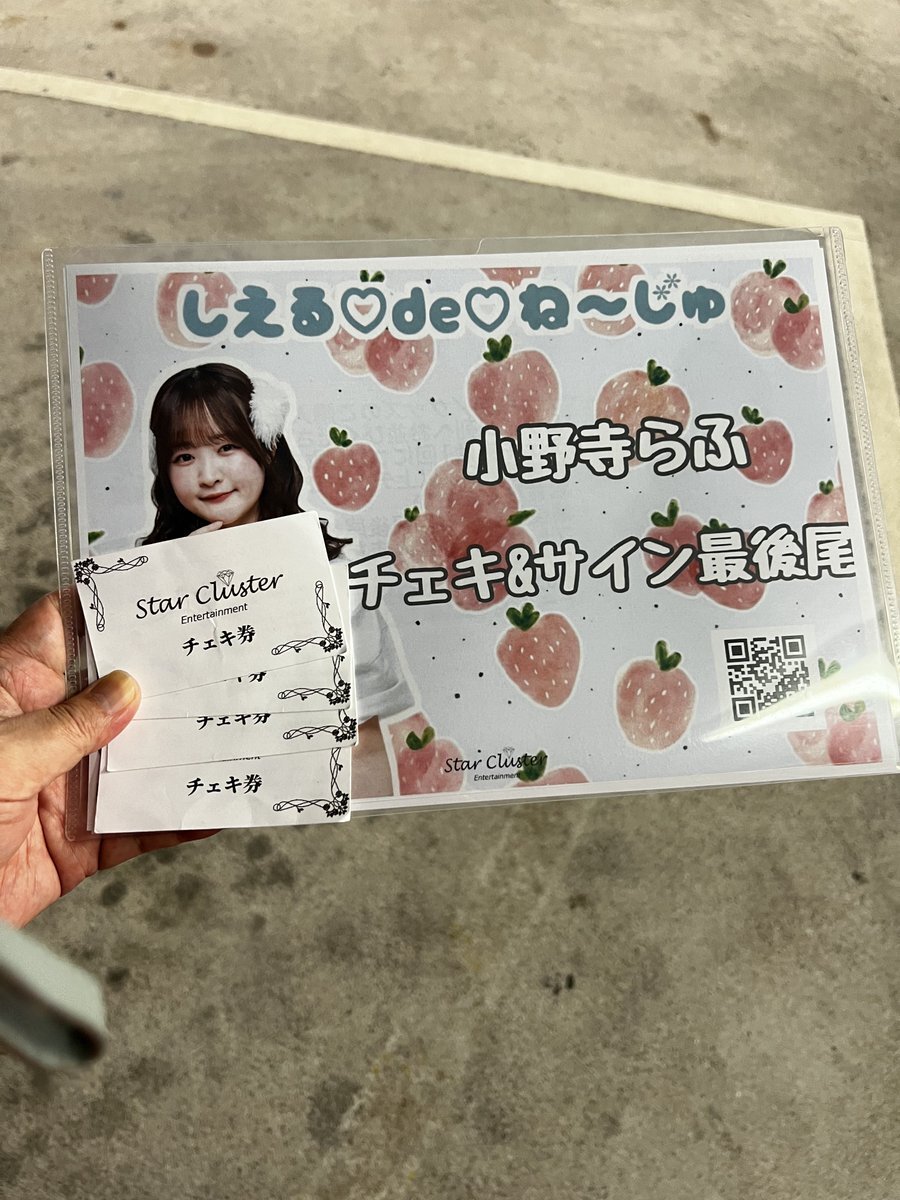 しえる♡de♡ね〜じゅ
小野寺らふ
チェキ&サイン最後尾
Star Cluster
Entertainment
チェキ券
チェキ券
チェキ券
Star Cluster
Entertainment